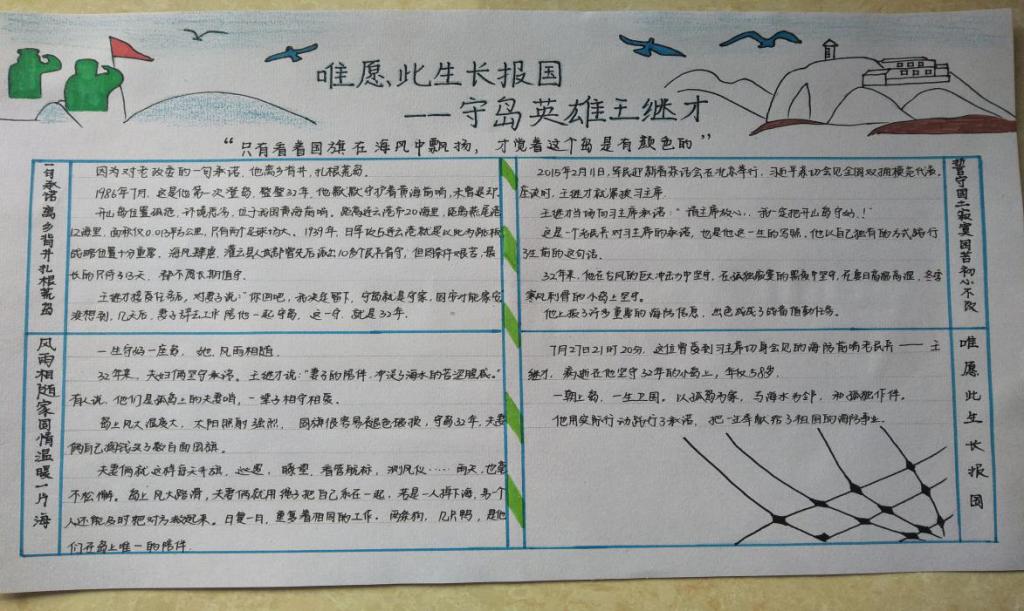 唯愿、此生长报国
——守岛英雄王继才
“只有看着国旗在海风中飘扬，才觉着这个岛是有颜色的”
一句承诺离乡背井扎根荒岛
因为对老政委的一句承诺，他离乡背井，扎根荒岛。
1986年7月，这是他第一次登岛，整整32年，他默默守护着黄海前哨，未曾退却。
开山岛位置孤悬，环境恶劣，位于我国黄海前哨。距离连云港市20海里，距离燕尾港
12海里，面积仅0.013平方公里，只有两个足球场大。1939年，日军攻占连云港就是以此为跳板
战略位置十分重要。海风肆虐，灌云县人武部曾先后派出10多个民兵看守，但因条件艰苦，最
长的只待了13天，都不愿长期值守。
王继才接受任务后，对妻子说：“你回吧，我决定留下，守岛就是守家，国安才能家安
没想到，几天后，妻子辞去工作陪他一起守岛，这一守，就是32年。
风雨相随家国情温暖一片海
一生守好一座岛，她风雨相随
32年来，夫妇俩坚守承诺。王继才说：“妻子的陪伴，冲淡了海水的苦涩腥咸。”
有人说，他们是孤岛上的夫妻哨，一辈子相守相爱。
岛上风大湿度大，太阳照射强烈，国旗很容易褪色破损，守岛32年，夫妻
俩自己掏钱买了数百面国旗。
夫妻俩就这样每天升旗，巡逻，瞭望，看管航标，测风仪……雨天，也毫
不松懈。岛上风大路滑，夫妻俩就用绳子把自己系在一起，若是一人掉下海，另一个
人还能及时把对方救起来。日复一日，重复着相同的工作。两条狗，几只鸭，是他
们开岛上唯一的陪伴
誓守国土寂寞困苦初心不改
2015年2月11日，军民迎新春茶话会在北京举行，习近平亲切会见全国双拥模范代表。
座谈时，王继才就紧挨习主席。
王继才当场向习主席承诺：“请主席放心，我一定把开山岛守好！”
这是一个民兵对习主席的承诺，也是他这一生的写照。他以自己独有的方式践行
了生前的这句话。
32年来，他在台风的巨大冲击力中坚守，在孤独寂寞的黑夜中坚守，在夏日高温高湿，冬季
寒风刺骨的小岛上坚守。
他上报了许多重要的海防信息，出色完成了战备值勤任务。
唯愿此生长报国
7月27日21时20分，这位曾受到习主席切身会见的海防前哨老民兵——王
继才，病逝在他坚守32年的小岛上，年仅58岁。
一朝上岛，一生卫国。以孤岛为家，与海水为邻，和孤独作伴。
他用实际行动践行了承诺，把一生奉献给了祖国的海防事业。